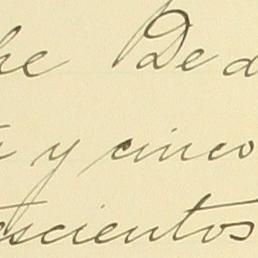 he Ded
y cinco
escientos